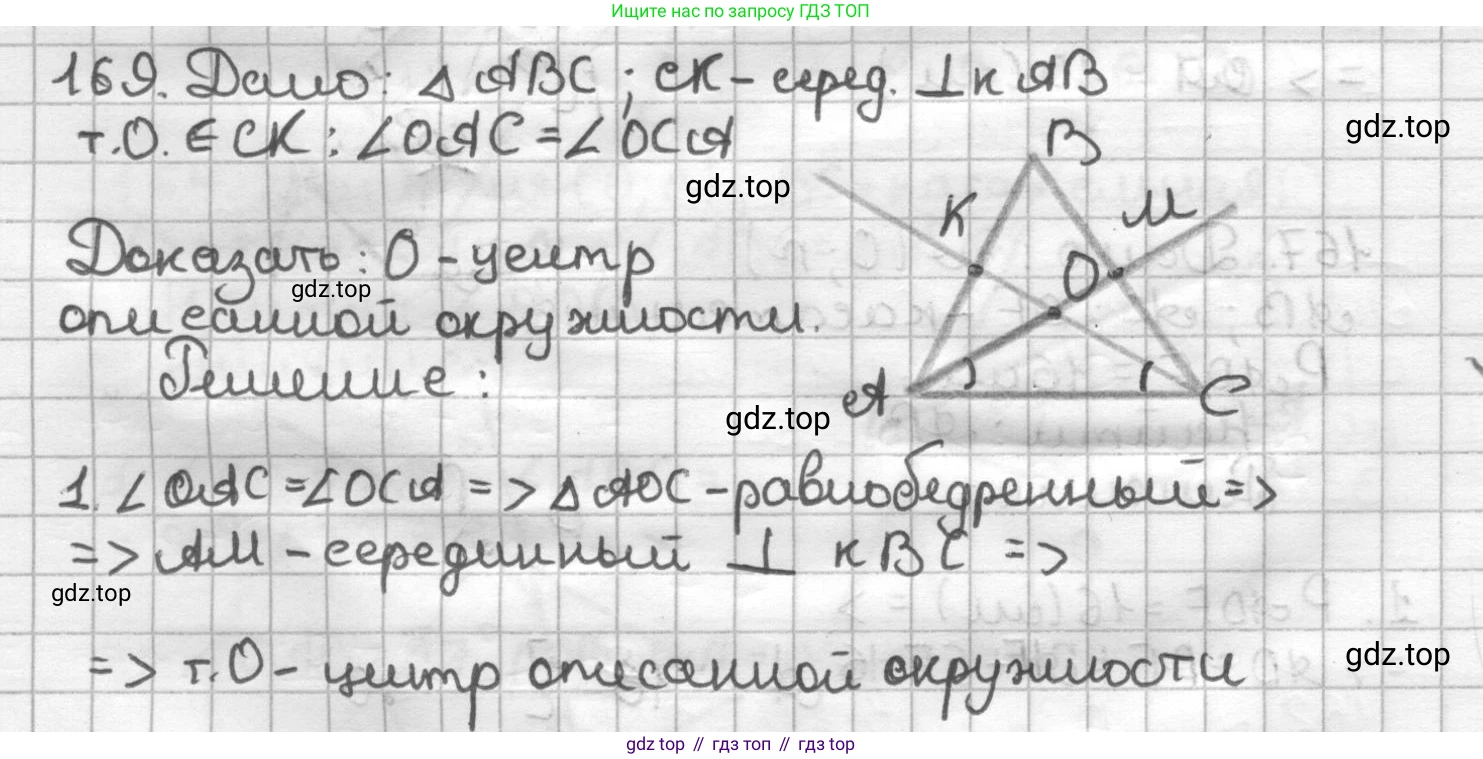 Ищите нас по запросу ГДЗ ТОП
169. Дано: △ ABC ; CK - серед. ⊥ к AB
т.O. ∈ CK : ∠OAC = ∠ OCA
gdz.top
gdz.top
B
K
M
O
A
C
Доказать: O - центр
gdz.top
описанной окружности.
Решение :
gdz.top
1. ∠ OAC = ∠OCA => △ AOC - равнобедренный =>
=> AM - серединный ⊥ к BC =>
gdz.top
=> т.O - центр описанной окружности
gdz.top
gdz top // гдз топ // гдз top